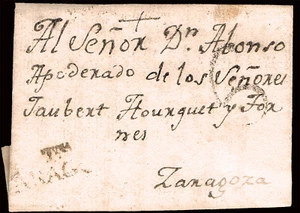 Al Señor Dn. Alonso
Apoderado de los Señores
Jaubert Hourquet y For
nes
Zaragoza